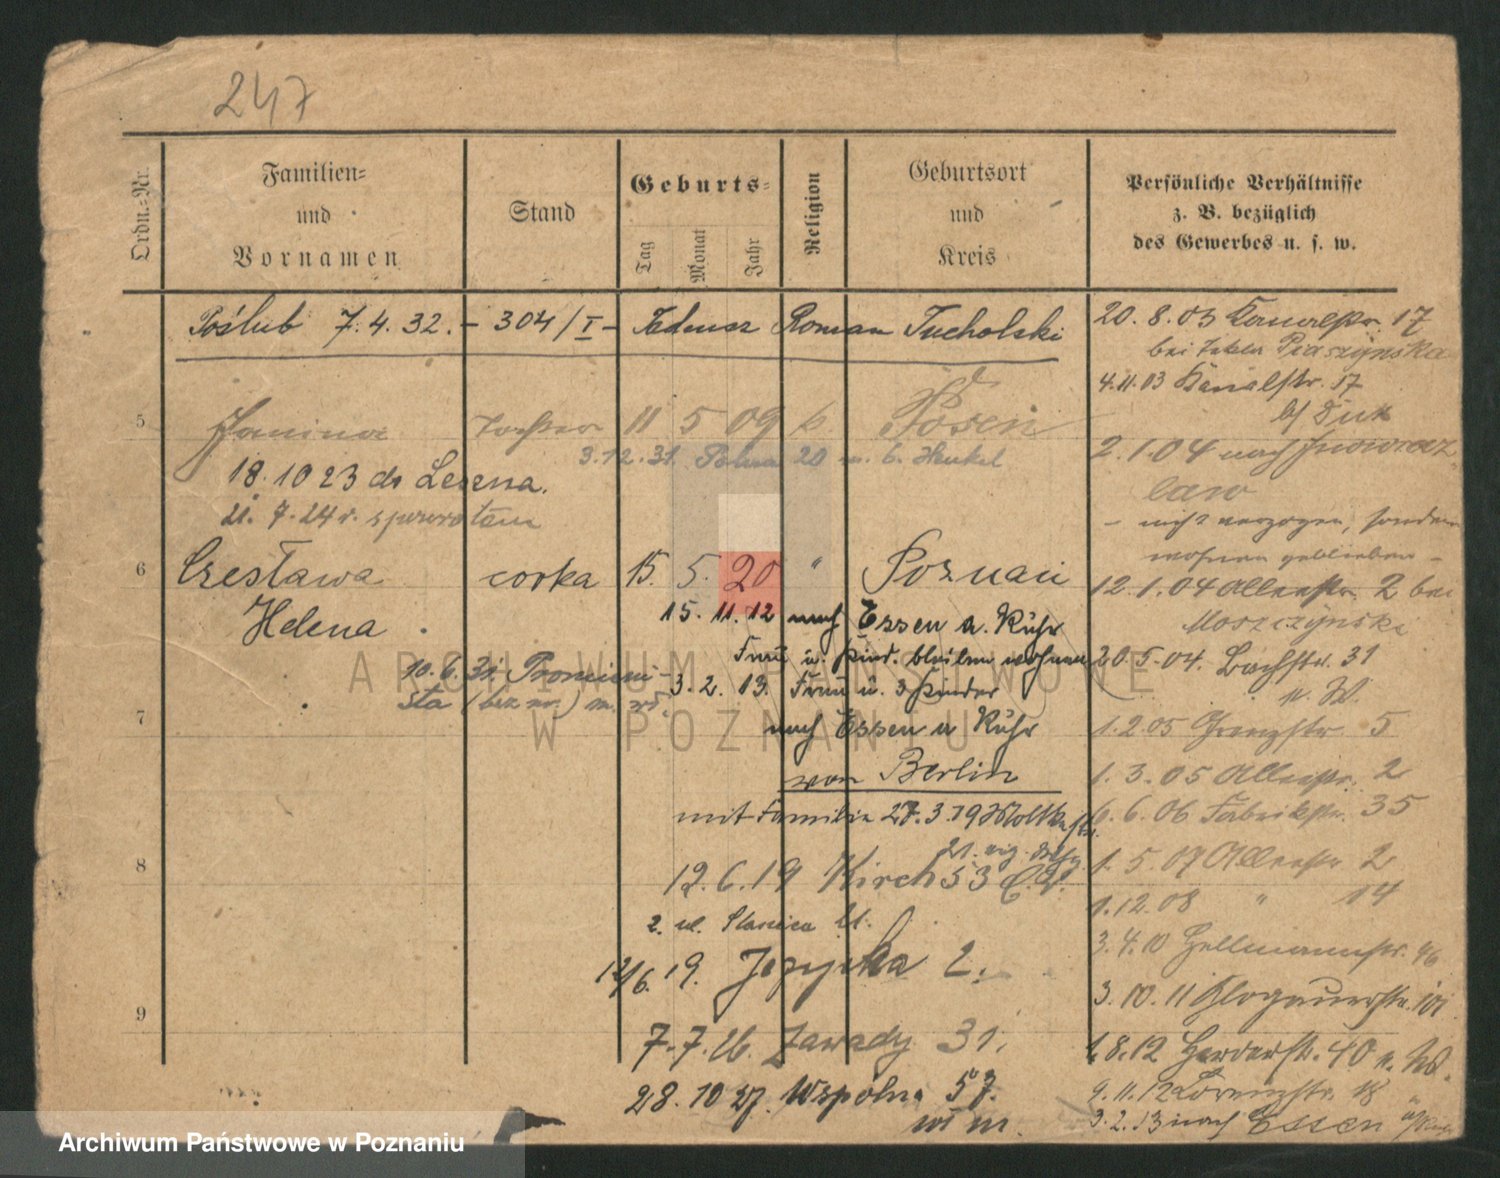 247
Ordn.-Nr.
Familien- und Vornamen
Stand
Geburts-
Tag
Monat
Jahr
Religion
Geburtsort und Kreis
Persönliche Verhältnisse
z. B. bezüglich
des Gewerbes u. s. w.
Poślub 7.4.32. - 304/I - Tadeusz Roman Tucholski
5
Janina Tochter 11 5 09 k Posen
3.12.31. Polna 20 u. b. Henkel
18.10 23 do Leszna.
21.7.24 r. z powrotem
6
Czesława córka 15. 5. 20 " Poznań
Helena
15. 11. 12 nach Essen a. Ruhr
Frau u. Kind. bleiben wohnen
10.6.31. Promieni-
sta (bez nr.) m.
3. 2. 13. Frau u. 3 Kinder
7
nach Essen a Ruhr
von Berlin
mit Familie 27.3.19 Moltkestr.
21.
8
12.6.19 Kirch 53
2. ul.
12/6. 19. Jeżycka 2.
9
7.7.26. Zawady 31.
28. 10 27. Wspólna 57.
m.
20. 8. 03 Kanalstr. 17
bei Piaszynska
4.11.03 Kanalstr. 17
b/ Duk
2.1.04 nach Inowraz
law
- nicht verzogen, sondern
wohnen geblieben -
12.1.04 Alleestr. 2 bei
Moszczynski
20.5.04. Bachstr. 31
1.2.05 Grenzstr 5
1.3.05 Alleestr. 2
6.6.06 Fabrikstr. 35
1.5.07 Alleestr 2
1.12.08 " 14
3.4.10 Hellmannstr. 46
3.10.11 Glogauerstr. 101
1.8.12 Herderstr. 40
9.11.12 Lorenzstr. 18
3.2.13 nach Essen a/Ruhr
ARCHIWUM PAŃSTWOWE
W POZNANIU
Archiwum Państwowe w Poznaniu